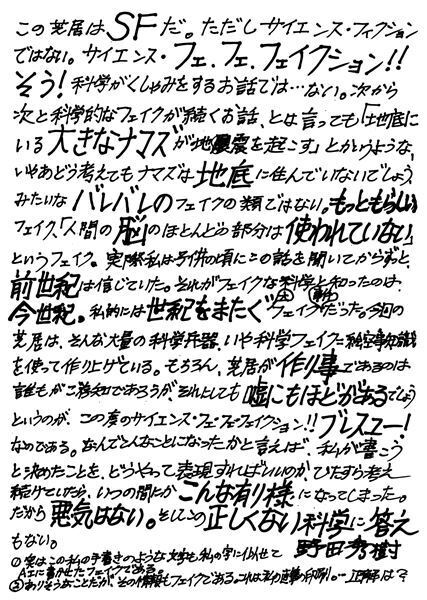 この芝居はSFだ。ただしサイエンス・フィクション
ではない。サイエンス・フェ、フェ、フェイクション!!
そう!科学がくしゃみをするお話では…ない。次から
次と科学的なフェイクが続くお話、とは言っても「地底に
いる大きなナマズが地震を起こす」とかいうような、
いやあどう考えてもナマズは地底に住んでいないでしょう、
みたいなバレバレのフェイクの類ではない。もっともらしい
フェイク、「人間の脳のほとんどの部分は使われていない」
というフェイク。実際私は子供の頃にこの話を聞いてからずっと、
前世紀は信じていた。それがフェイクな科学と知ったのは、
今世紀。私的には世紀をまたぐフェイクだった。今回の
芝居は、そんな大量の科学兵器、いや科学フェイクに
を使って作り上げている。もちろん、芝居が作り事であるのは
誰もがご承知であろうが、それにしても嘘にもほどがあるでしょう
というのが、この度のサイエンス・フェ・フェ・フェクション!!ブレスユー!
なのである。なんでこんなことになったかと言えば、私が書こう
と決めたことを、どうやって表現すればいいのか、ひたすら考え
続けていたら、いつの間にかこんな有り様になってしまった。
だから悪気はない。そしてこの正しくない科学に答え
もない。
野田秀樹
①実はこの私の手書きのような文字も、私の字に似せて
AIに書かせたフェイクである。
②ありそうなことだが、その情報もフェイクである。これは私の直筆の印刷。…正解は?